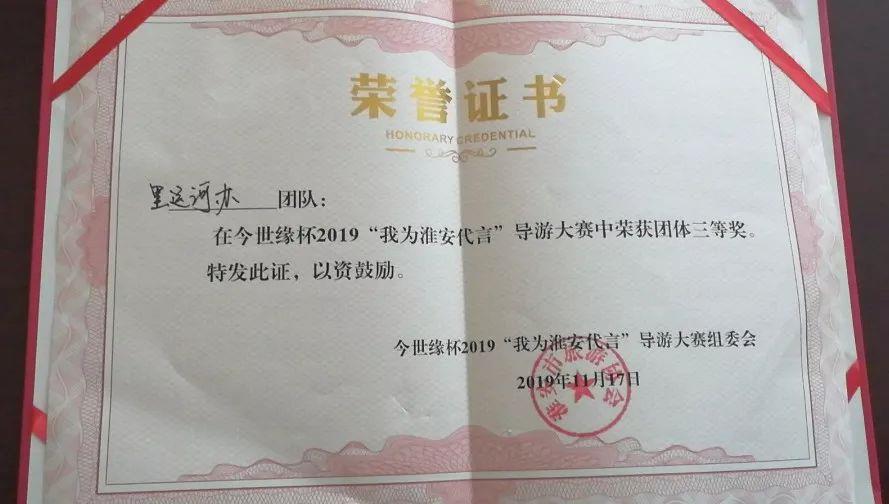 荣誉证书
HONORARY CREDENTIAL
里运河办 团队：
在今世缘杯2019“我为淮安代言”导游大赛中荣获团体三等奖。
特发此证，以资鼓励。
今世缘杯2019“我为淮安代言”导游大赛组委会
2019年11月17日
淮安市旅游协会